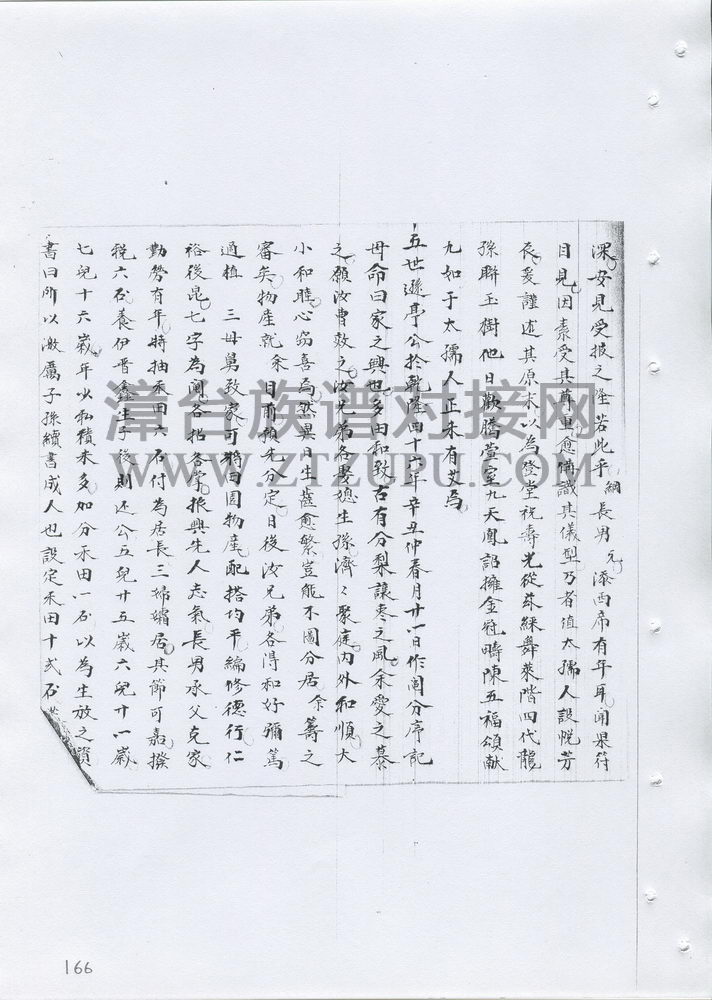 深安見受报之隆若此乎 綱長男元 添西席有年耳聞果符
目見因素受其尊重愈備識其儀型乃者值太孺人設帨芳
辰爰謹述其原末以為後堂祝壽光從茲綵舞萊階四代龍
孫聯玉樹他日歡騰萱室九天鳳詔擁金冠疇陳五福頌献
九如于太孺人正未有艾焉
五世遜亭公於乾隆四十六年辛丑仲春月廿八日作鬮分序記
毋命曰家之興也多由和致古有分梨讓枣之風余愛之慕
之願汝曹效之汝兄弟各娶媳生孫濟〻聚庭内外和順大
小和睦心窃喜焉然異日生齒愈繁豈能不圖分居 余籌之
審矣物產就余目前預先分定日後汝兄弟各得和好彌篤
過枯 三母舅致家可將田園物產配搭均平編修德行仁
裕後昆七字為阄各拈各掌振興先人志氣長男承父克家
勤勞有年特抽禾田六石付為居長三婦孀居其節可嘉撥
税六石養伊晋鑫生子後則还公五兒廿五歲六兒廿一歲
七兒十六歲年少私積未多加分禾田一石以為生放之資
書曰所以激厲子孫續書成人也設定禾田十弍石
漳台族谱对接网
WWW.ZTZUPU.COM
166